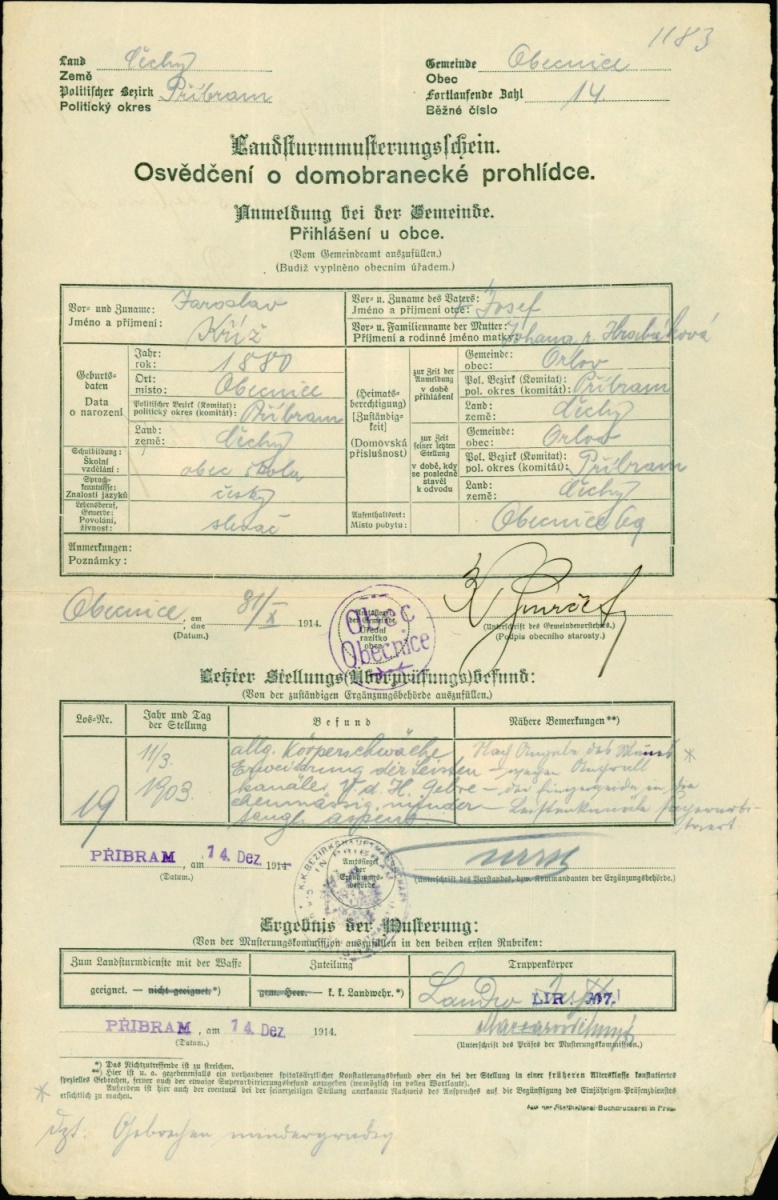 1183
Land Čechy
Země
Politischer Bezirk Příbram
Politický okres
Gemeinde Obecnice
Obec
Fortlaufende Zahl 14.
Běžné číslo
Landsturmmusterungsschein.
Osvědčení o domobranecké prohlídce.
Anmeldung bei der Gemeinde.
Přihlášení u obce.
(Vom Gemeindeamt auszufüllen.)
(Budiž vyplněno obecním úřadem.)
Vor- und Zuname: Jaroslav
Jméno a příjmení: Kříž
Vor- u. Zuname des Vaters: Josef
Jméno a příjmení otce:
Vor- u. Familienname der Mutter:
Příjmení a rodinné jméno matky: Johana r. Hrabáková
Geburtsdaten
Data o narození
Jahr:
rok: 1880
Ort:
místo: Obecnice
Politischer Bezirk (Komitat):
politický okres (komitát): Příbram
Land:
země: Čechy
Schulbildung:
Školní vzdělání: obec škola
Sprachkenntnisse:
Znalosti jazyků český
Lebensberuf, Gewerbe:
Povolání, živnost:
(Heimatsberechtigung)
[Zuständigkeit]
(Domovská příslušnost)
zur Zeit der Anmeldung
v době přihlášení
Gemeinde:
obec: Orlov
Pol. Bezirk (Komitat):
pol. okres (komitát): Příbram
Land:
země: Čechy
zur Zeit seiner letzten Stellung
v době, kdy se posledně stavěl k odvodu
Gemeinde:
obec: Orlov
Pol. Bezirk (Komitat):
pol. okres (komitát): Příbram
Land:
země: Čechy
Aufenthaltsort:
Místo pobytu: Obecnice 69
Anmerkungen:
Poznámky:
Obecnice, am
dne 31/X 1914.
(Datum.)
Amtssiegel der Gemeinde
Úřední razítko obce
Obec
Obecnice
(Unterschrift des Gemeindevorstehers.)
(Podpis obecního starosty.)
Letzter Stellungs(Überprüfungs)befund:
(Von der zuständigen Ergänzungsbehörde auszufüllen.)
Los-Nr.
Jahr und Tag der Stellung
Befund
Nähere Bemerkungen**)
19
11/3.
1903.
allg. Körperschwäche
Erweiterung der Leisten
kanäle
Nach Angabe des
PŘIBRAM, am 14. Dez. 1914
(Datum.)
Amtssiegel der Ergänzungsbehörde.
K.K. BEZIRKSHAUPTMANNSCHAFT IN PŘIBRAM
(Unterschrift des Vorstandes, bzw. Kommandanten der Ergänzungsbehörde.)
Ergebnis der Musterung:
(Von der Musterungskommission auszufüllen in den beiden ersten Rubriken:)
Zum Landsturmdienste mit der Waffe
Zuteilung
Truppenkörper
geeignet. — nicht geeignet.*)
gem. Heer. — k. k. Landwehr.*)
LIR
PŘIBRAM, am 14. Dez. 1914.
(Datum.)
(Unterschrift des Präses der Musterungskommission.)
*) Das Nichtzutreffende ist zu streichen.
**) Hier ist u. a. gegebenenfalls ein vorhandener spitalsärztlicher Konstatierungsbefund oder ein bei der Stellung in einer früheren Altersklasse konstatiertes
spezielles Gebrechen, ferner auch der etwaige Superarbitrierungsbefund anzugeben (womöglich im vollen Wortlaute).
Außerdem ist hier auch der eventuell bei der seinerzeitigen Stellung anerkannte Nachweis des Anspruches auf die Begünstigung des Einjährigen-Präsenzdienstes
ersichtlich zu machen.
Aus der Statthalterei-Buchdruckerei in Prag.
* dzt. Gebrechen mindergradig